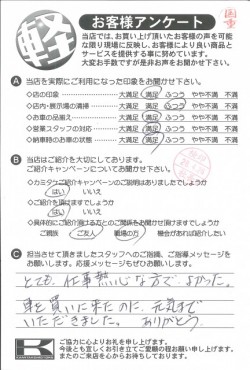 軽
お客様アンケート
当店では、お買い上げ頂いたお客様の声を可能
な限り現場に反映し、お客様により良い商品と
サービスを提供する事に努めています。
大変お手数ですが是非お声をお聞かせ下さい。
A 当店を実際にご利用になった印象をお聞かせ下さい。
・店の印象 大満足 満足 ふつう やや不満 不満
・店内・展示場の清掃 大満足 満足 ふつう やや不満 不満
・お車の品揃え 大満足 満足 ふつう やや不満 不満
・営業スタッフの対応 大満足 満足 ふつう やや不満 不満
・納車時のお車の状態 大満足 満足 ふつう やや不満 不満
B 当店はご紹介を大切にしております。
ご紹介キャンペーンについてお聞かせ下さい。
・カミタケご紹介キャンペーンのご説明はありましたでしょうか
はい いいえ
・ご紹介キャンペーンにご協力頂けますでしょうか
はい いいえ
・具体的にご紹介頂けるとのご関係をお聞かせ頂けますでしょうか
ご親族 ご友人 職場の方 機会があれば紹介したい
C 担当させて頂きましたスタッフへのご指摘、ご指導メッセージを
お願いします。応援メッセージもぜひお願いします。
とても、仕事熱心な方で、よかった。
車を買いに来たのに、元気まで
いただきました。ありがとう
K
ご協力に心よりお礼を申し上げます。
今後とも宜しくお引き立てご愛顧の程お願い申し上げます。
またのご来店を心からお待ちしております。